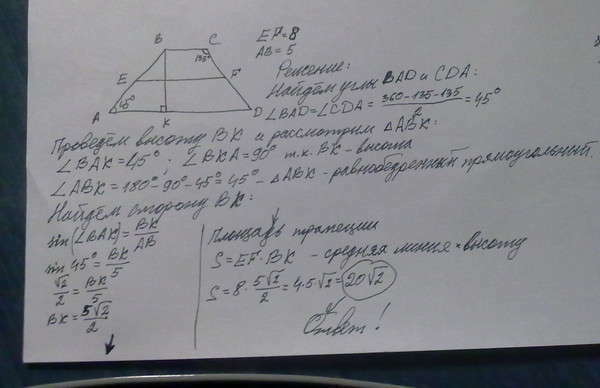 B C
135°
E F
A 45° K D
EF=8
AB=5
Решение:
Найдём углы BAD и CDA:
∠BAD=∠CDA= (360-135-135)/2 =45°
Проведём высоту BK и рассмотрим △ABK:
∠BAK=45°; ∠BKA=90° т.к. BK - высота
∠ABK=180°-90-45=45° - △ABK - равнобедренный прямоугольный.
Найдём сторону BK:
sin(∠BAK)= BK/AB
sin 45°= BK/5
√2/2 = BK/5
BK= 5√2/2
Площадь трапеции
S=EF·BK - средняя линия × высоту
S=8· 5√2/2 =4·5·√2= 20√2
Ответ!